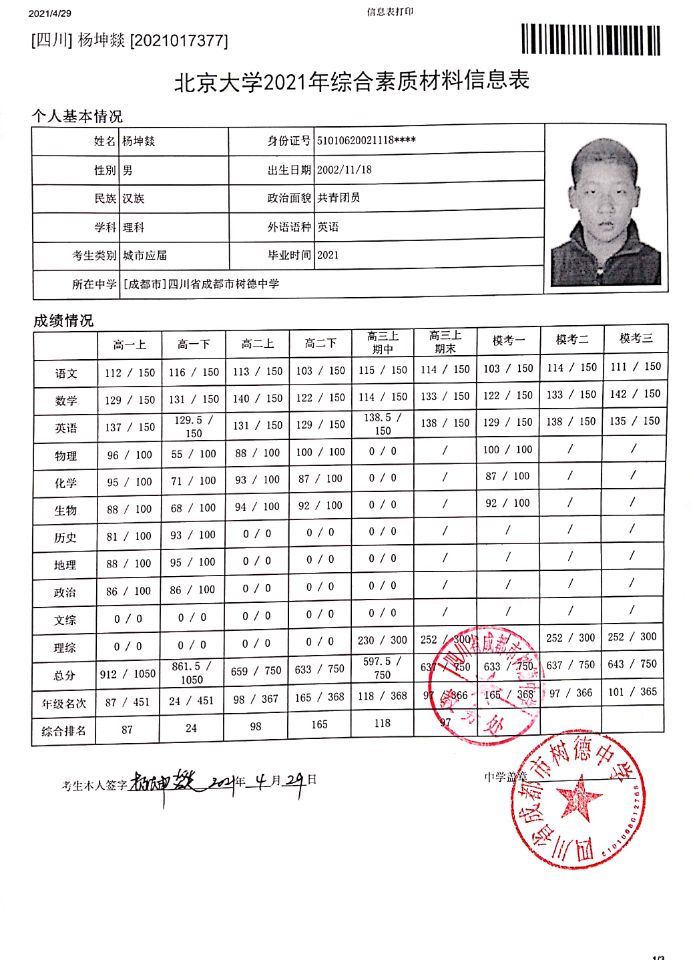 2021/4/29
信息表打印
[四川] 杨坤燚 [2021017377]
北京大学2021年综合素质材料信息表
个人基本情况
姓名 杨坤燚 身份证号 51010620021118****
性别 男 出生日期 2002/11/18
民族 汉族 政治面貌 共青团员
学科 理科 外语语种 英语
考生类别 城市应届 毕业时间 2021
所在中学 [成都市]四川省成都市树德中学
成绩情况
高一上 高一下 高二上 高二下 高三上期中 高三上期末 模考一 模考二 模考三
语文 112 / 150 116 / 150 113 / 150 103 / 150 115 / 150 114 / 150 103 / 150 114 / 150 111 / 150
数学 129 / 150 131 / 150 140 / 150 122 / 150 114 / 150 133 / 150 122 / 150 133 / 150 142 / 150
英语 137 / 150 129.5 / 150 131 / 150 129 / 150 138.5 / 150 138 / 150 129 / 150 138 / 150 135 / 150
物理 96 / 100 55 / 100 88 / 100 100 / 100 0 / 0 / 100 / 100 / /
化学 95 / 100 71 / 100 93 / 100 87 / 100 0 / 0 / 87 / 100 / /
生物 88 / 100 68 / 100 94 / 100 92 / 100 0 / 0 / 92 / 100 / /
历史 81 / 100 93 / 100 0 / 0 0 / 0 0 / 0 / / / /
地理 88 / 100 95 / 100 0 / 0 0 / 0 0 / 0 / / / /
政治 86 / 100 86 / 100 0 / 0 0 / 0 0 / 0 / / / /
文综 0 / 0 0 / 0 0 / 0 0 / 0 0 / 0 / / / /
理综 0 / 0 0 / 0 0 / 0 0 / 0 230 / 300 252 / 300 252 / 300 252 / 300
总分 912 / 1050 861.5 / 1050 659 / 750 633 / 750 597.5 / 750 637 / 750 633 / 750 637 / 750 643 / 750
年级名次 87 / 451 24 / 451 98 / 367 165 / 368 118 / 368 97 / 366 165 / 368 97 / 366 101 / 365
综合排名 87 24 98 165 118 97
考生本人签字 杨坤燚 2021年 4 月 29 日
中学盖章
四川省成都市树德中学
5101068012765
1/3